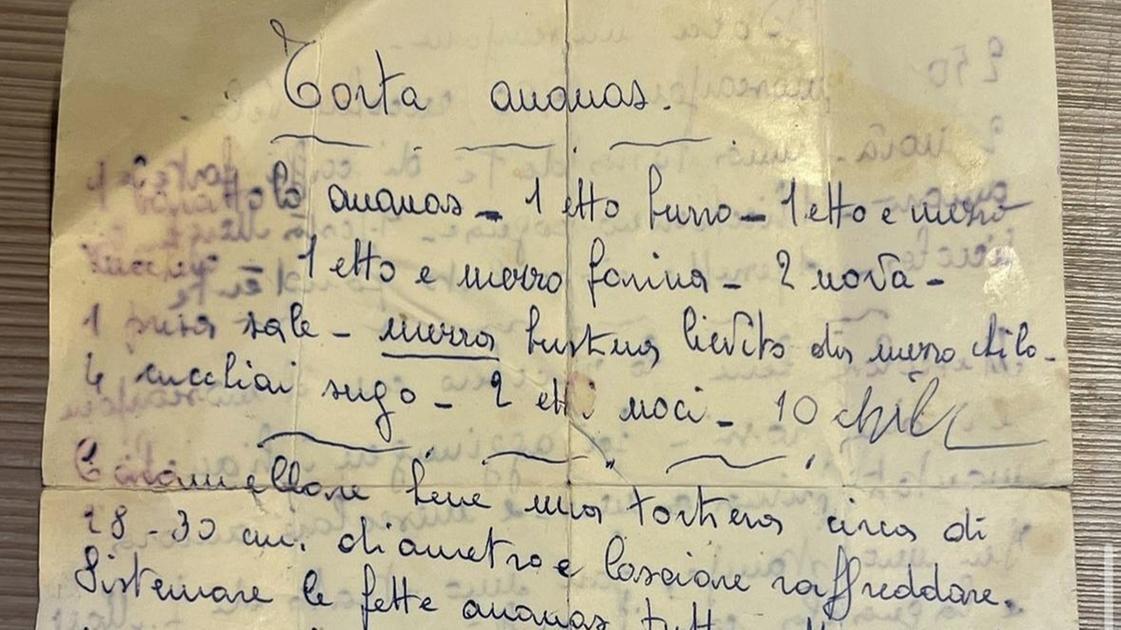 Torta ananas.
1 barattolo ananas - 1 etto burro - 1 etto e mezzo
zucchero - 1 etto e mezzo farina - 2 uova -
1 presa sale - mezza bustina lievito da mezzo chilo -
4 cucchiai sugo - 2 etti noci - 10
Caramellare bene una tortiera circa di
28-30 cm. diametro e lasciare raffreddare.
Sistemare le fette ananas